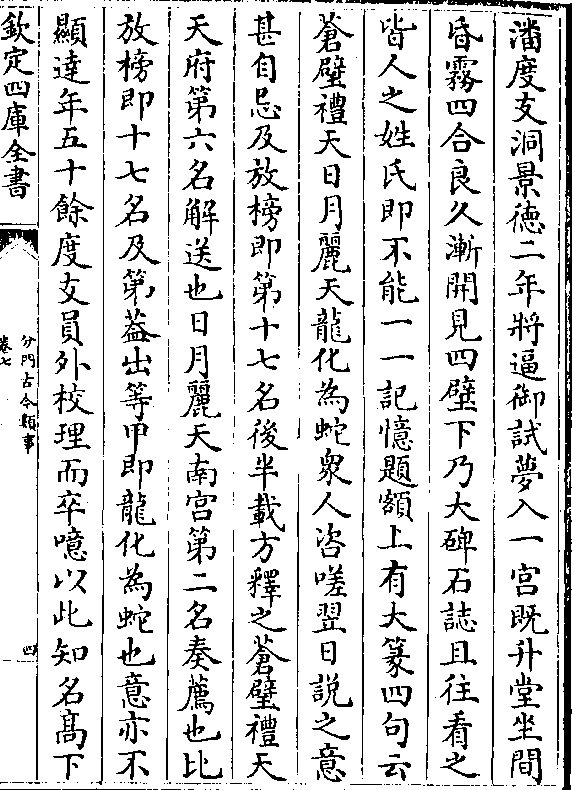 潘度支洞景徳二年將逼御試夢入一宫既升堂坐間
昏霧四合良久漸開見四壁下乃大碑石誌且往看之
皆人之姓氏即不能一一記憶題額上有大篆四句云
蒼璧禮天日月麗天龍化為蛇衆人咨嗟翌日説之意
甚自忌及放榜即第十七名後半載方釋之蒼璧禮天
天府第六名解送也日月麗天南宫第二名奏薦也比
放榜即十七名及第葢出等甲即龍化為蛇也意亦不
顯達年五十餘度支員外校理而卒噫以此知名髙下
欽定四庫全書
分門古今類事
卷七
四